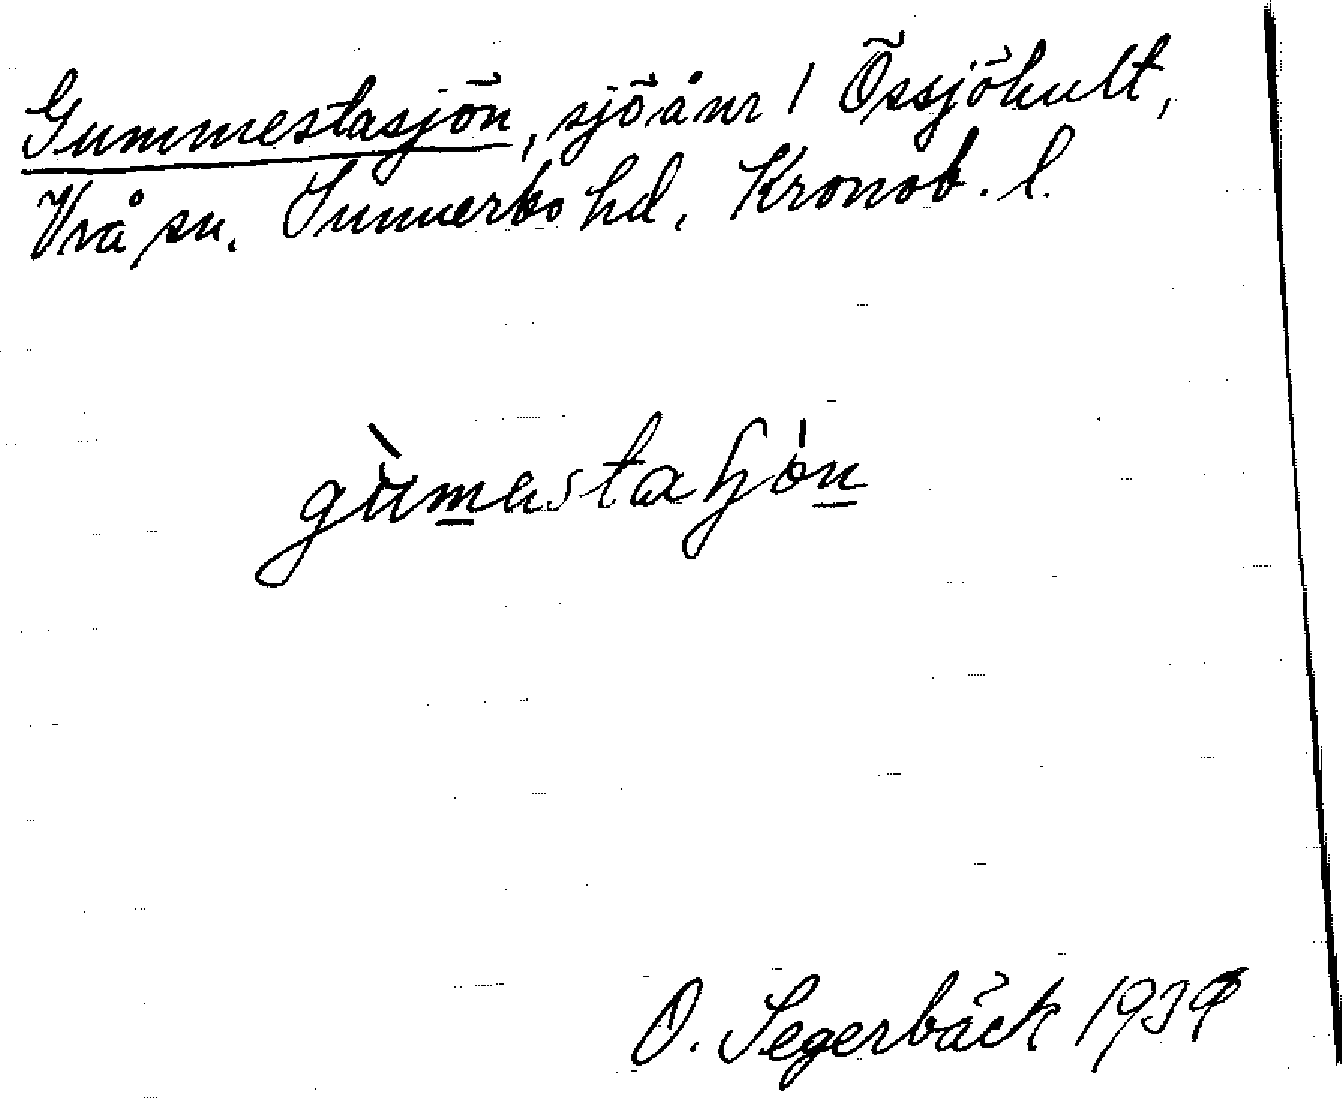 Gummestasjön, sjö å nr 1 Össjöhult,
Vrå sn. Sunnerbo hd, Kronob. l.
gùmestaɧón
O. Segerbäck 1939